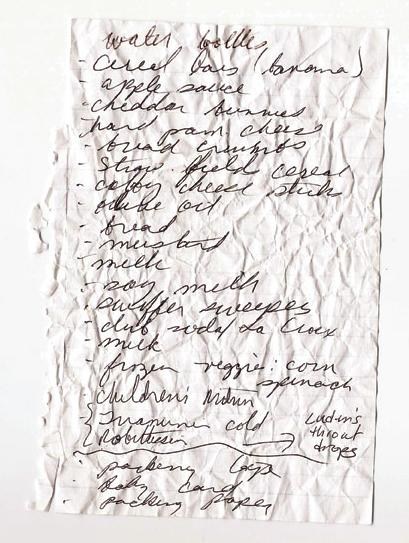 water bottles
- cereal bars (banana)
- apple sauce
- cheddar bunnies
- hard parm. cheese
- bread crumbs
- field cereal
- cheese sticks
- olive oil
- bread
- mustard
- milk
- soy milk
- swiffer sweeper
- club soda/La Croix
- milk
- frozen veggie: corn
spinach
- Children's Motrin
cold
Robitussin
Luden's
throat
drops
- packing tape
- baby card
- packing paper